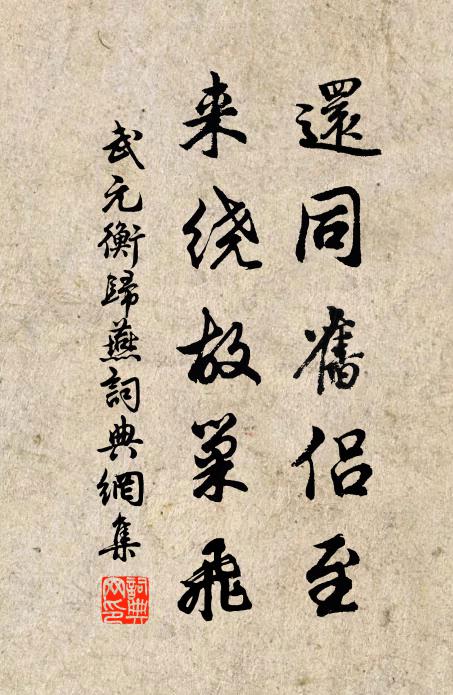 還同舊侶至
来绕故巢飛
武元衡歸燕詞典網集
詞典网印